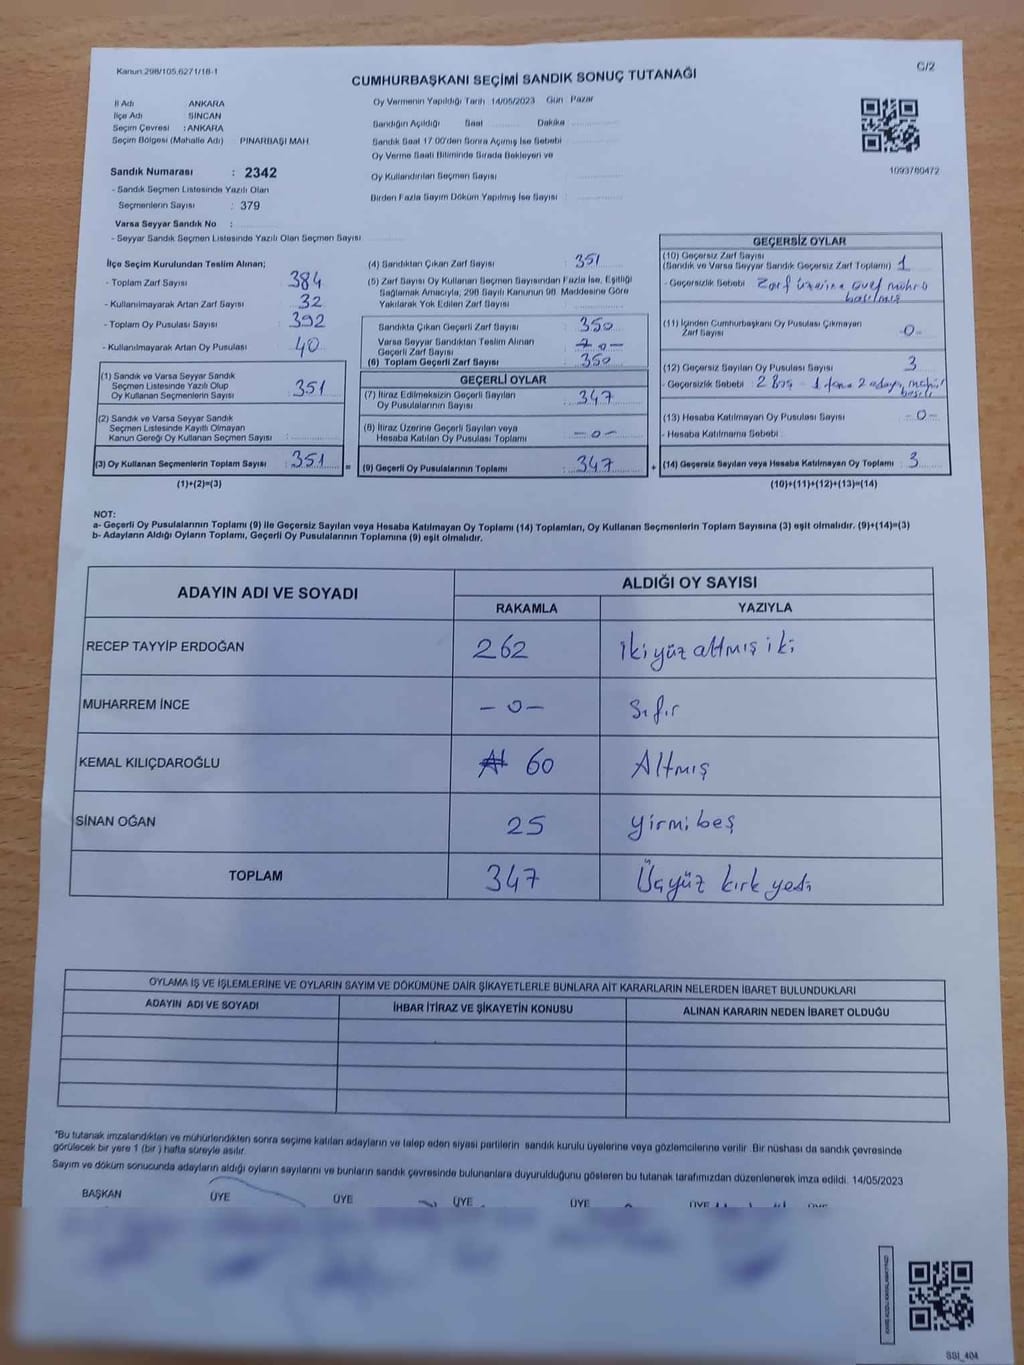 Kanun:298/105,6271/16-1
C/2
CUMHURBAŞKANI SEÇİMİ SANDIK SONUÇ TUTANAĞI
İl Adı ANKARA
İlçe Adı : SİNCAN
Seçim Çevresi : ANKARA
Seçim Bölgesi (Mahalle Adı) PINARBAŞI MAH.
Oy Vermenin Yapıldığı Tarih 14/05/2023 Gün Pazar
Sandığın Açıldığı Saat Dakika
Sandık Saat 17.00'den Sonra Açılmış İse Sebebi
Oy Verme Saati Bitiminde Sırada Bekleyen ve
Oy Kullandırılan Seçmen Sayısı
Birden Fazla Sayım Döküm Yapılmış İse Sayısı
1093760472
Sandık Numarası : 2342
- Sandık Seçmen Listesinde Yazılı Olan
Seçmenlerin Sayısı : 379
Varsa Seyyar Sandık No :
- Seyyar Sandık Seçmen Listesinde Yazılı Olan Seçmen Sayısı
İlçe Seçim Kurulundan Teslim Alınan;
- Toplam Zarf Sayısı 384
- Kullanılmayarak Artan Zarf Sayısı 32
- Toplam Oy Pusulası Sayısı 392
- Kullanılmayarak Artan Oy Pusulası 40
(1) Sandık ve Varsa Seyyar Sandık
Seçmen Listesinde Yazılı Olup
Oy Kullanan Seçmenlerin Sayısı 351
(2) Sandık ve Varsa Seyyar Sandık
Seçmen Listesinde Kayıtlı Olmayan
Kanun Gereği Oy Kullanan Seçmen Sayısı :
(3) Oy Kullanan Seçmenlerin Toplam Sayısı : 351
(1)+(2)=(3)
(4) Sandıktan Çıkan Zarf Sayısı : 351
(5) Zarf Sayısı Oy Kullanan Seçmen Sayısından Fazla İse, Eşitliği
Sağlamak Amacıyla, 298 Sayılı Kanunun 98. Maddesine Göre
Yakılarak Yok Edilen Zarf Sayısı
Sandıkta Çıkan Geçerli Zarf Sayısı : 350
Varsa Seyyar Sandıktan Teslim Alınan
Geçerli Zarf Sayısı - 0 -
(6) Toplam Geçerli Zarf Sayısı : 350
GEÇERLİ OYLAR
(7) İtiraz Edilmeksizin Geçerli Sayılan
Oy Pusulalarının Sayısı : 347
(8) İtiraz Üzerine Geçerli Sayılan veya
Hesaba Katılan Oy Pusulası Toplamı : - 0 -
= (9) Geçerli Oy Pusulalarının Toplamı : 347
GEÇERSİZ OYLAR
(10) Geçersiz Zarf Sayısı
(Sandık ve Varsa Seyyar Sandık Geçersiz Zarf Toplamı) 1
- Geçersizlik Sebebi : Zarf üzerine evet mührü
basılmış
(11) İçinden Cumhurbaşkanı Oy Pusulası Çıkmayan
Zarf Sayısı -0-
(12) Geçersiz Sayılan Oy Pusulası Sayısı 3
- Geçersizlik Sebebi : 2 Boş - 1 tane 2 adayı mühür
basılı
(13) Hesaba Katılmayan Oy Pusulası Sayısı -0-
- Hesaba Katılmama Sebebi :
+ (14) Geçersiz Sayılan veya Hesaba Katılmayan Oy Toplamı : 3
(10)+(11)+(12)+(13)=(14)
NOT:
a- Geçerli Oy Pusulalarının Toplamı (9) ile Geçersiz Sayılan veya Hesaba Katılmayan Oy Toplamı (14) Toplamları, Oy Kullanan Seçmenlerin Toplam Sayısına (3) eşit olmalıdır. (9)+(14)=(3)
b- Adayların Aldığı Oyların Toplamı, Geçerli Oy Pusulalarının Toplamına (9) eşit olmalıdır.
ADAYIN ADI VE SOYADI ALDIĞI OY SAYISI
RAKAMLA YAZIYLA
RECEP TAYYİP ERDOĞAN 262 ikiyüz altmış iki
MUHARREM İNCE - 0 - Sıfır
KEMAL KILIÇDAROĞLU 60 Altmış
SİNAN OĞAN 25 yirmi beş
TOPLAM 347 Üçyüz kırk yedi
OYLAMA İŞ VE İŞLEMLERİNE VE OYLARIN SAYIM VE DÖKÜMÜNE DAİR ŞİKAYETLERLE BUNLARA AİT KARARLARIN NELERDEN İBARET BULUNDUKLARI
ADAYIN ADI VE SOYADI İHBAR İTİRAZ VE ŞİKAYETİN KONUSU ALINAN KARARIN NEDEN İBARET OLDUĞU
*Bu tutanak imzalandıktan ve mühürlendikten sonra seçime katılan adayların ve talep eden siyasi partilerin sandık kurulu üyelerine veya gözlemcilerine verilir. Bir nüshası da sandık çevresinde
görülecek bir yere 1 (bir) hafta süreyle asılır.
Sayım ve döküm sonucunda adayların aldığı oyların sayılarını ve bunların sandık çevresinde bulunanlara duyurulduğunu gösteren bu tutanak tarafımızdan düzenlenerek imza edildi. 14/05/2023
BAŞKAN ÜYE ÜYE ÜYE ÜYE ÜYE ÜYE
SSI_404